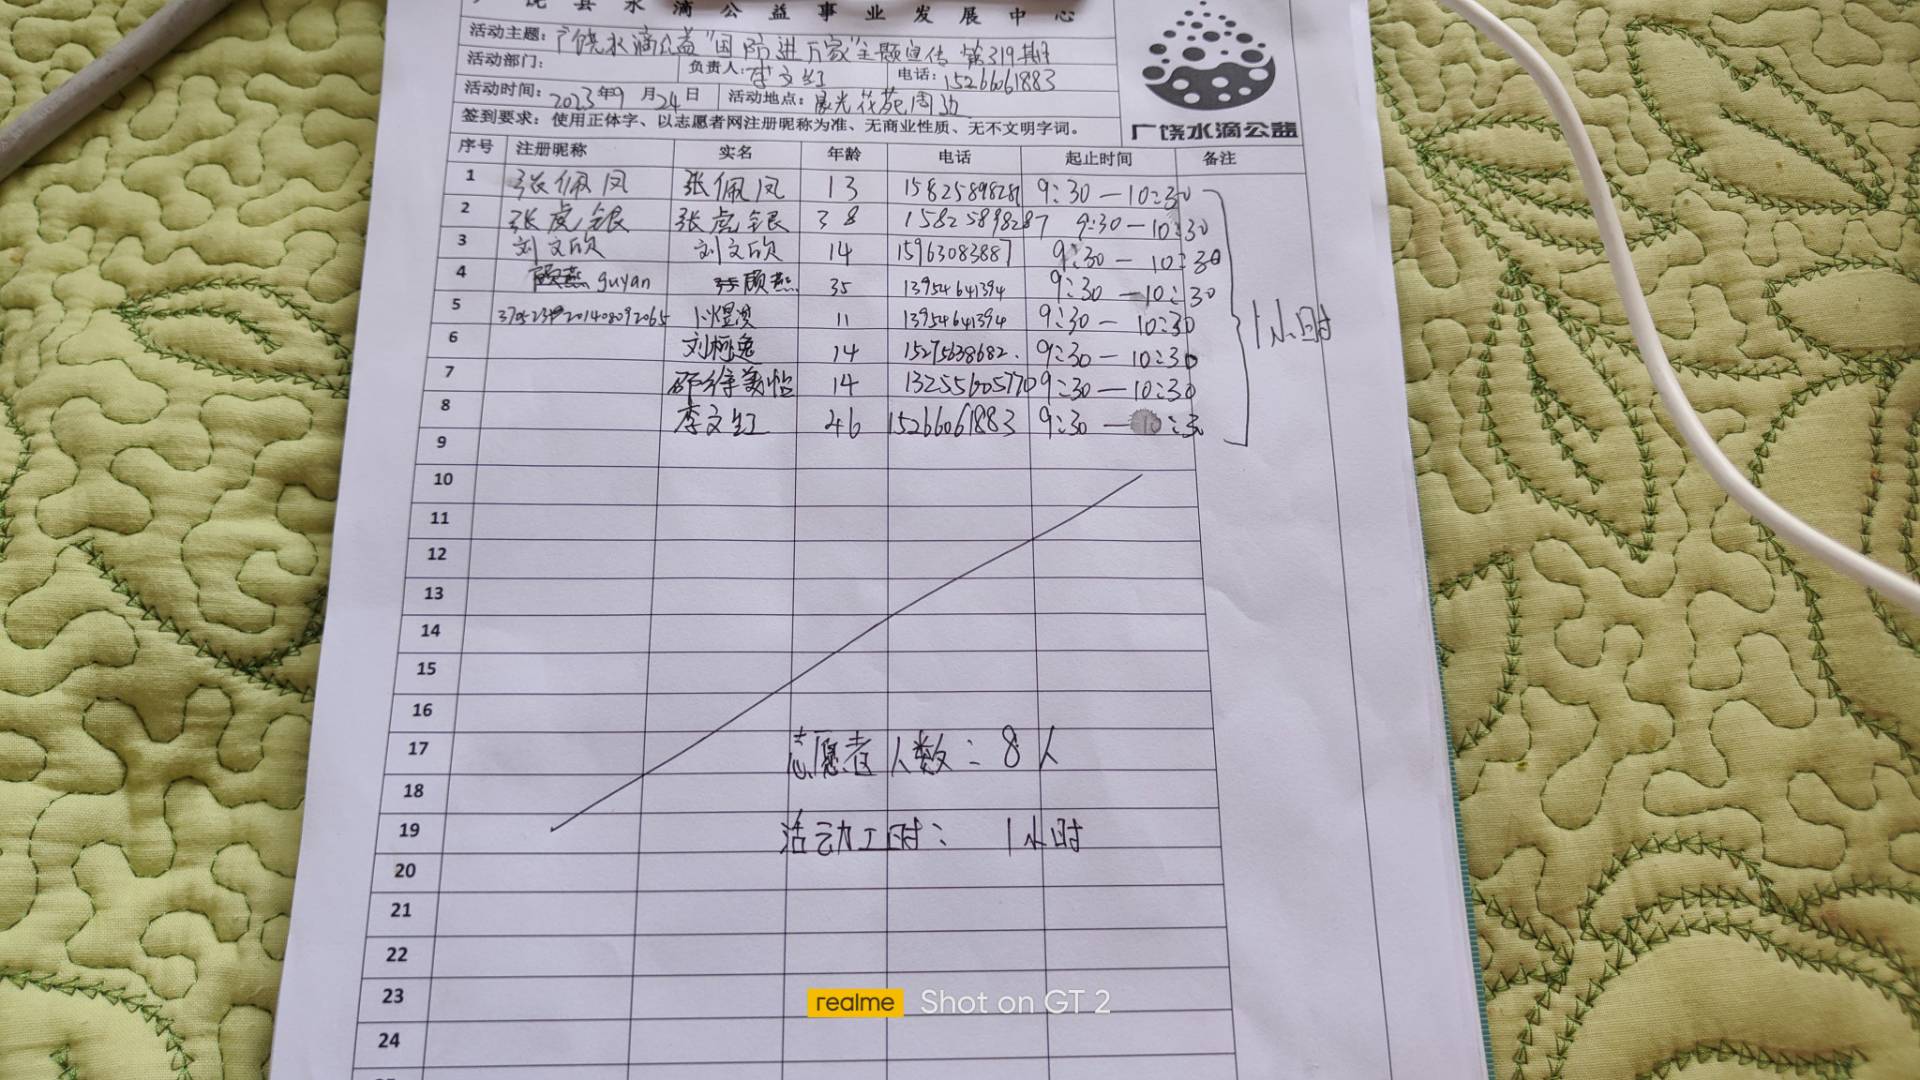 广饶县水滴公益事业发展中心
活动主题：广饶水滴公益"国防进万家"主题宣传 第319期
活动部门： 负责人：李文红 电话：15266061883
活动时间：2023年9月24日 活动地点：晨光花苑周边
签到要求：使用正体字、以志愿者网注册昵称为准、无商业性质、无不文明字词。
广饶水滴公益
序号 注册昵称 实名 年龄 电话 起止时间 备注
1 张佩凤 张佩凤 13 15825898281 9:30—10:30
2 张虎银 张虎银 38 15825898287 9:30—10:30
3 刘文欣 刘文欣 14 15963083887 9:30—10:30
4 顾燕 guyan 顾燕 35 13954641394 9:30—10:30
5 11 13954641394 9:30—10:30
1小时
6 14 15275638682. 9:30—10:30
7 14 13255605770 9:30—10:30
8 李文红 46 15266061883 9:30—10:30
9
10
11
12
13
14
15
16
17 志愿者人数：8人
18
19 活动工时： 1小时
20
21
22
23
24
realme Shot on GT 2